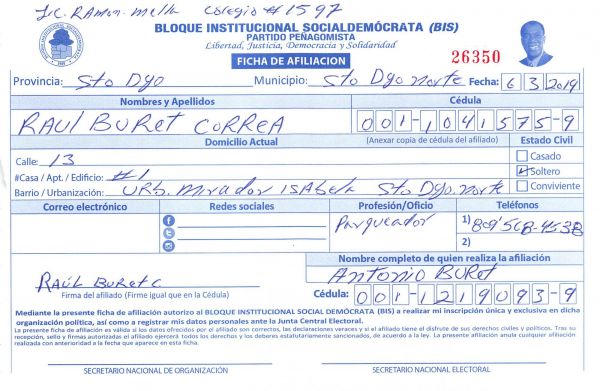 Lic. RAmon Mella Colegio #1597
BLOQUE INSTITUCIONAL SOCIALDEMÓCRATA (BIS)
PARTIDO PEÑAGOMISTA
Libertad, Justicia, Democracia y Solidaridad
FICHA DE AFILIACION
26350
Provincia: Sto Dgo Municipio: Sto Dgo Norte Fecha: 6 3 2019
Nombres y Apellidos Cédula
RAUL BURET CORREA 001-1041575-9
Domicilio Actual (Anexar copia de cédula del afiliado) Estado Civil
Calle: 13 Casado
#Casa / Apt. / Edificio: #1 Soltero
Barrio / Urbanización: URB. Mirador ISAbela Sto Dgo. norte Conviviente
Correo electrónico Redes sociales Profesión/Oficio Teléfonos
Parqueador 1) 809 568-4538
2)
Nombre completo de quien realiza la afiliación
RAÚL BURET C ANtonio BURet
Firma del afiliado (Firme igual que en la Cédula) Cédula: 001-1219093-9
Mediante la presente ficha de afiliación autorizo al BLOQUE INSTITUCIONAL SOCIAL DEMÓCRATA (BIS) a realizar mi inscripción única y exclusiva en dicha
organización política, así como a registrar mis datos personales ante la Junta Central Electoral.
La presente ficha de afiliación es válida si los datos ofrecidos por el afiliado son correctos, las declaraciones veraces y si el afiliado tiene el disfrute de sus derechos civiles y políticos. Tras su
recepción, sello y firmas autorizadas el afiliado ejercerá todos los derechos y los deberes estatutariamente sancionados, de acuerdo a la ley. La presente afiliación anula cualquier afiliación
realizada con anterioridad a la fecha que aparece en esta ficha.
SECRETARIO NACIONAL DE ORGANIZACIÓN SECRETARIO NACIONAL ELECTORAL